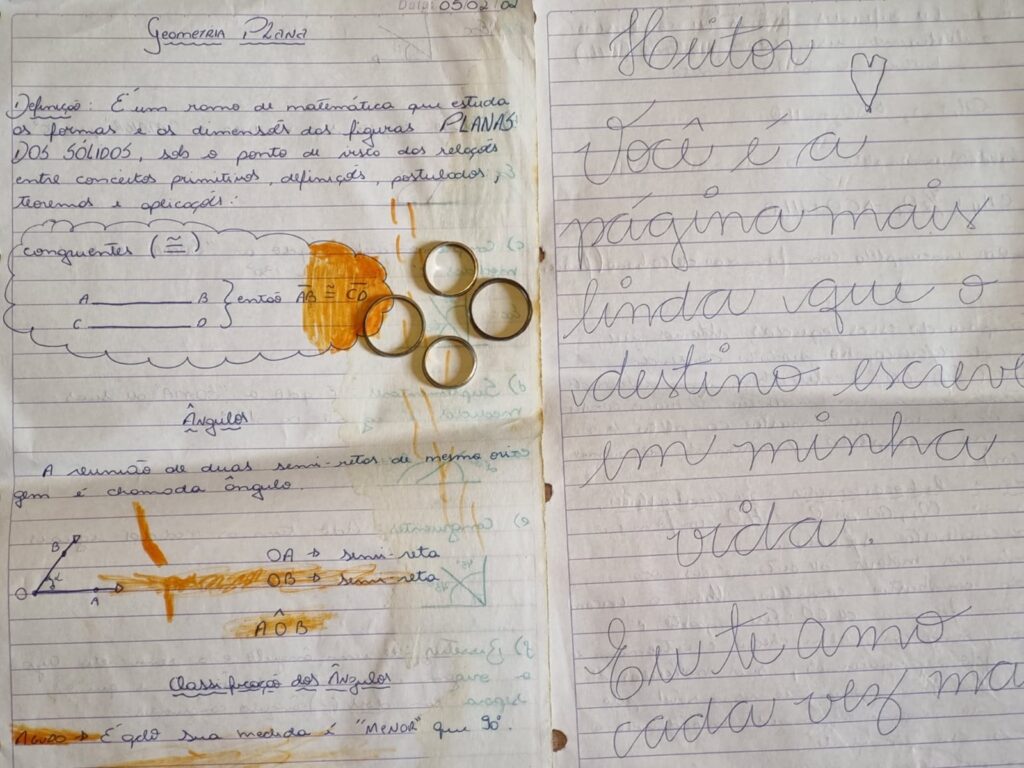 Data: 05/02/02
Geometria Plana
Definição: É um ramo de matemática que estuda
as formas e as dimensões das figuras PLANAS
DOS SÓLIDOS, sob o ponto de vista das relações
entre conceitos primitivos, definições, postulados,
teoremas e aplicações.
congruentes (≅)
A B
C D
então AB ≅ CD
Ângulos
A reunião de duas semi-retas de mesma ori-
gem é chamada ângulo.
B
α
O
A
OA → semi-reta
OB → semi-reta
AÔB
Classificação dos Ângulos
Agudo → É qdo sua medida é "MENOR" que 90°.
Heitor
Você é a
página mais
linda que o
destino escreve
em minha
vida.
Eu te amo
cada vez ma